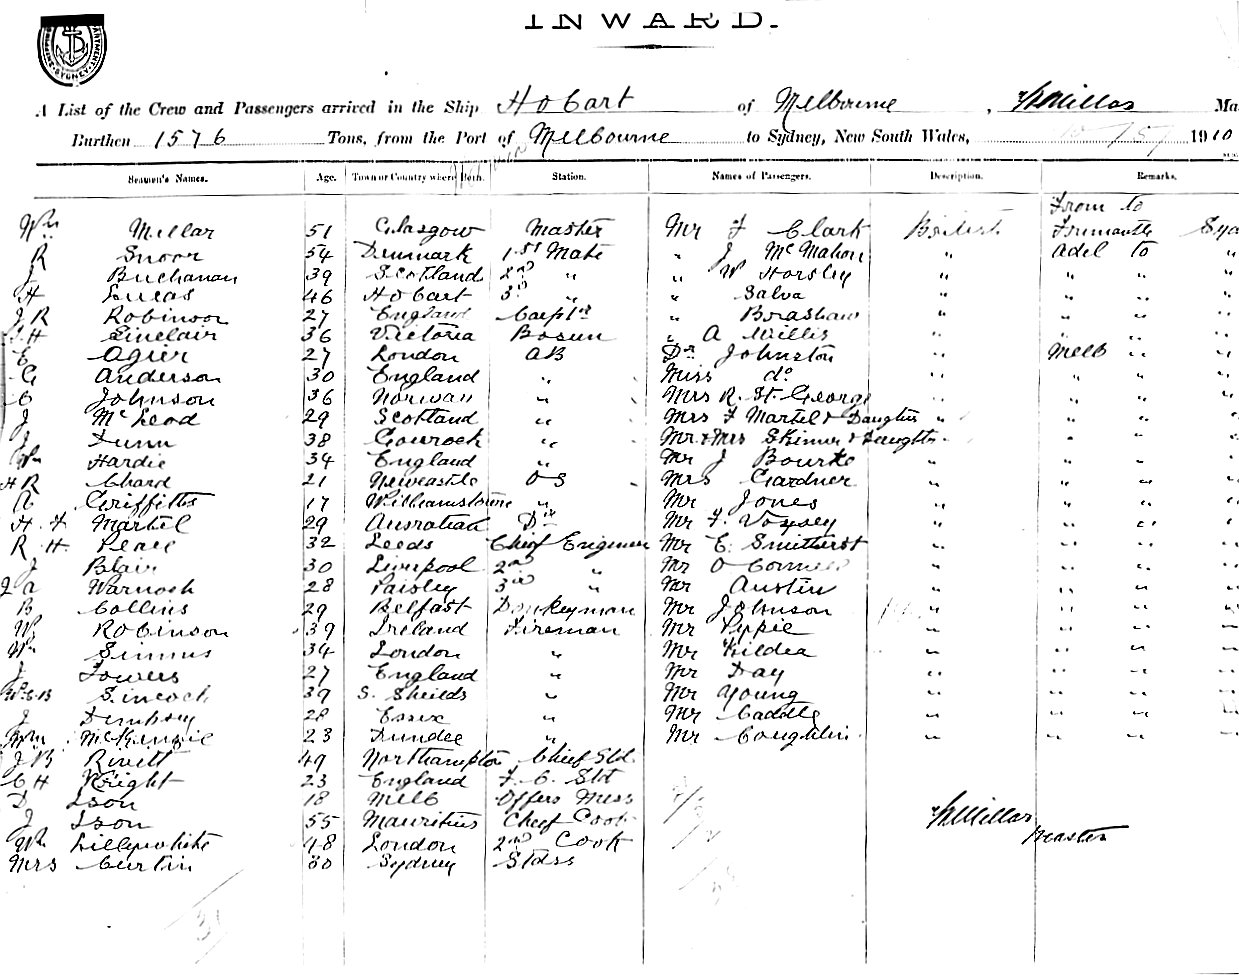 INWARD.
A List of the Crew and Passengers arrived in the Ship Hobart of Melbourne, W Millar Ma
Burthen 1576 Tons, from the Port of Melbourne to Sydney, New South Wales, 1910
Seamen's Names. Age. Town or Country where Born. Station. Names of Passengers. Description. Remarks.
From to
Wm Millar 51 Glasgow Master Mr F Clark British Fremantle Syd
R Snoor 54 Denmark 1st Mate " J McMahon " Adel to "
J Buchanan 39 Scotland 2nd " " W Horsley " " " "
H Lucas 46 Hobart 3rd " " Salva " " " "
J R Robinson 27 England Carptr " Brashaw " " " "
H Sinclair 36 Victoria Bosun " A Willis " " " "
E Agier 27 London AB Dr Johnston " Melb " "
G Anderson 30 England " Miss do " " " "
C Johnson 36 Norway " Mrs R. St. George " " " "
J McLeod 29 Scotland " Mrs F Martel & Daughter " " " "
J Dunn 38 Gourock " Mr & Mrs Skinner & Daughter " " " "
Wm Hardie 34 England " Mr J Bourke " " " "
H R Chard 21 Newcastle OS Mrs Gardner " " " "
A Griffiths 17 Williamstown " Mr Jones " " " "
H. F Martel 29 Australian Do Mr F. Voysey " " " "
R. H. Peace 32 Leeds Chief Engineer Mr E. Smithurst " " " "
J Blair 30 Liverpool 2nd " Mr O Connell " " " "
A Warnock 28 Paisley 3rd " Mr Austin " " " "
B Collins 29 Belfast Donkeyman Mr Johnson " " " "
W Robinson 39 Ireland Fireman Mr Pyppie " " " "
Wm Simms 34 London " Mr Kildea " " " "
J Towers 27 England " Mr Day " " " "
Sincock 39 S. Shields " Mr Young " " " "
J Dempsey 28 Essex " Mr Caddle " " " "
Wm McKenzie 23 Dundee " Mr Coughlin " " " "
J B Rivett 49 Northampton Chief Std
C H Wright 23 England F. C. Std
D Ison 18 Melb Offers Mess
J Ison 55 Mauritius Chief Cook W Millar
Wm Lillywhite 48 London 2nd Cook Master
Mrs Curtin 30 Sydney Stdss